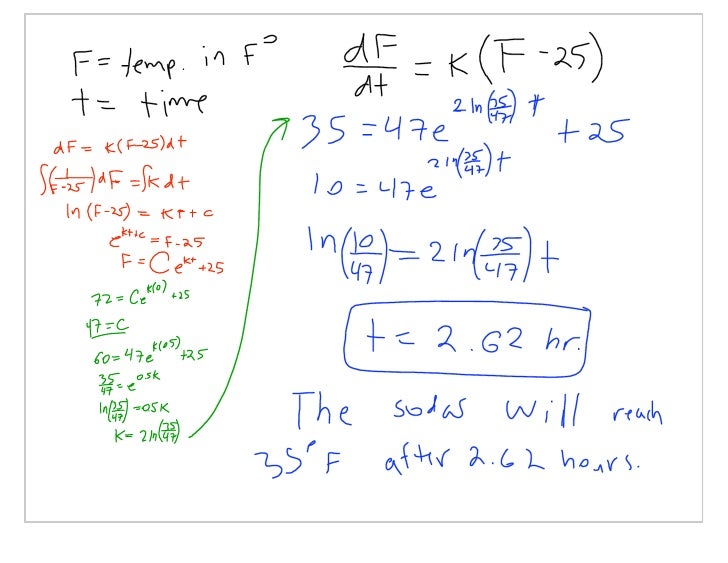 F = temp. in F°
t = time
dF = K(F-25)dt
∫(1/F-25)dF = ∫K dt
ln (F-25) = Kt + c
e^kt+c = F-25
F = Ce^kt + 25
72 = Ce^k(0) + 25
47 = C
60 = 47e^k(0.5) + 25
35/47 = e^0.5k
ln(35/47) = 0.5K
K = 2ln(35/47)
dF/dt = K(F-25)
35 = 47e^2ln(35/47)t + 25
10 = 47e^2ln(35/47)t
ln(10/47) = 2ln(35/47)t
t = 2.62 hr.
The sodas will reach
35°F after 2.62 hours.